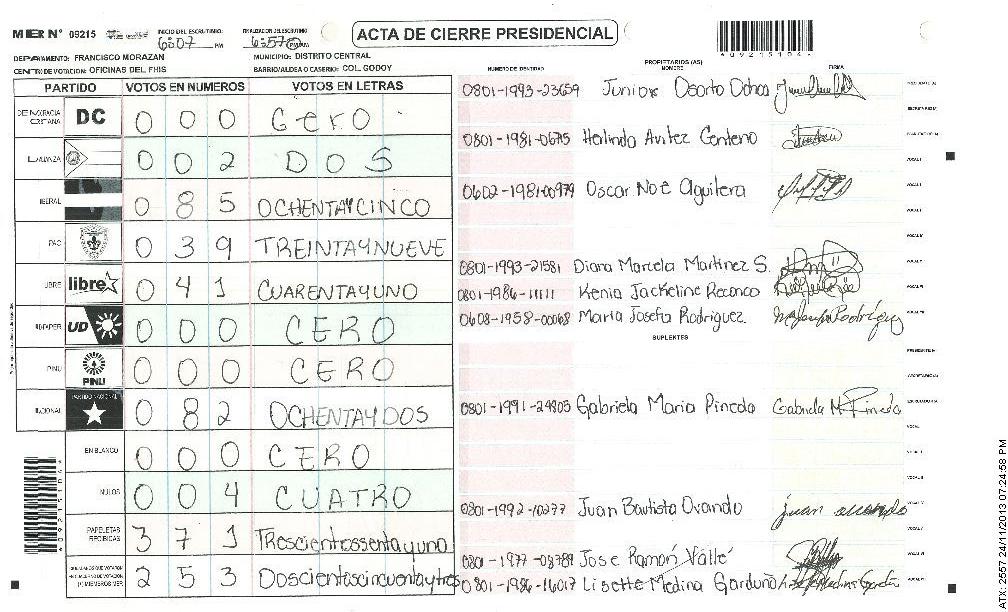 MER N° 09215
INICIO DEL ESCRUTINIO:
6:07 PM
FINALIZACION DEL ESCRUTINIO
6:57 PM
ACTA DE CIERRE PRESIDENCIAL
*09215106*
DEPARTAMENTO: FRANCISCO MORAZAN
MUNICIPIO: DISTRITO CENTRAL
CENTRO DE VOTACION: OFICINAS DEL FHIS
BARRIO/ALDEA O CASERIO: COL. GODOY
PARTIDO VOTOS EN NUMEROS VOTOS EN LETRAS
DEMOCRACIA CRISTIANA DC 0 0 0 Cero
ALIANZA 0 0 2 DOS
LIBERAL 0 8 5 OCHENTAYCINCO
PAC 0 3 9 TREINTAYNUEVE
LIBRE libre 0 4 1 CUARENTAYUNO
UD 0 0 0 CERO
PINU PINU 0 0 0 CERO
NACIONAL PARTIDO NACIONAL 0 8 2 OCHENTAYDOS
EN BLANCO 0 0 0 CERO
NULOS 0 0 4 CUATRO
PAPELETAS RECIBIDAS 3 7 1 Trescientossentayuno
CIUDADANOS QUE VOTARON 2 5 3 Doscientoscincuentaytres
NUMERO DE IDENTIDAD
PROPIETARIOS (AS)
NOMBRE
FIRMA
0801-1993-23659 Junior Osorto Ochoa
0801-1981-0675 Herlindo Avilez Centeno
0602-1981-00979 Oscar Noe Aguilera
0801-1993-21581 Diana Marcela Martinez S.
0801-1986-11111 Kenia Jackeline Reconco
0608-1958-00068 Maria Josefa Rodriguez
SUPLENTES
0801-1991-24805 Gabriela Maria Pineda Gabriela M. Pineda
0801-1992-10277 Juan Bautista Ovando juan ovando
0801-1977-08789 Jose Ramón Valle
0801-1986-16017 Lisette Medina Garduño
ATX-2557 24/11/2013 07:24:58 PM